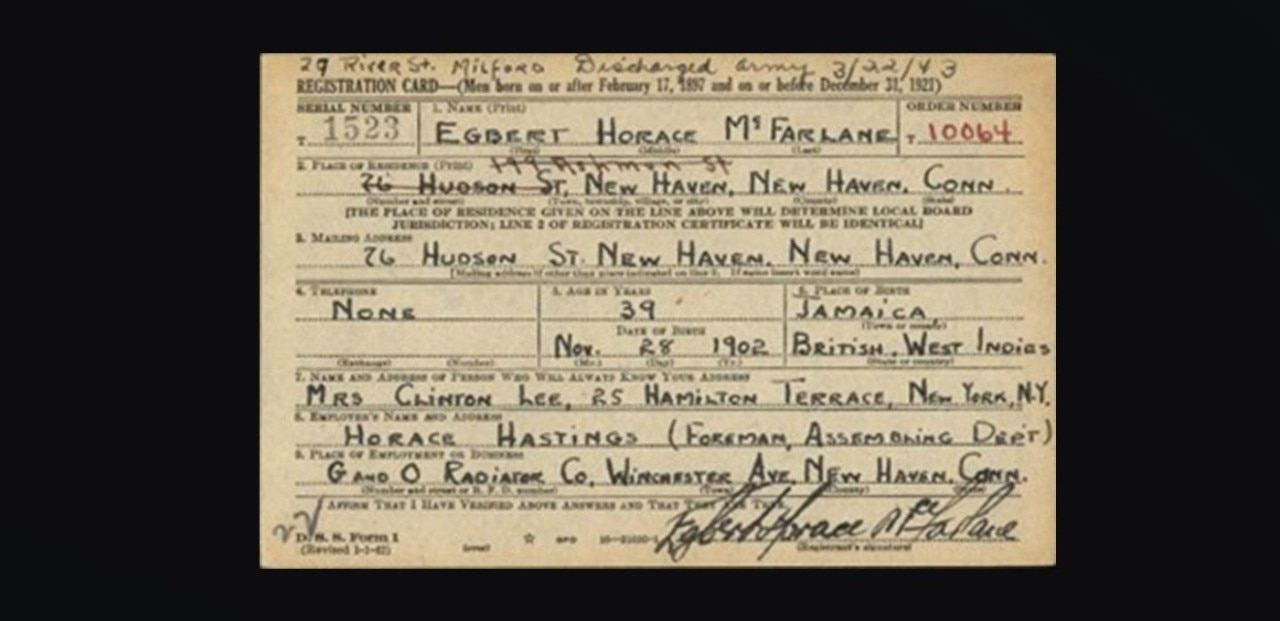 29 River St. Milford Discharged army 3/22/43
REGISTRATION CARD—(Men born on or after February 17, 1897 and on or before December 31, 1921)
SERIAL NUMBER 1. NAME (Print) ORDER NUMBER
T 1523 EGBERT HORACE Mc FARLANE T 10064
(First) (Middle) (Last)
2. PLACE OF RESIDENCE (Print) St
76 HUDSON ST, NEW HAVEN, NEW HAVEN, CONN.
(Number and street) (Town, township, village, or city) (County) (State)
[THE PLACE OF RESIDENCE GIVEN ON THE LINE ABOVE WILL DETERMINE LOCAL BOARD
JURISDICTION; LINE 2 OF REGISTRATION CERTIFICATE WILL BE IDENTICAL]
3. MAILING ADDRESS
76 HUDSON ST. NEW HAVEN. NEW HAVEN, CONN.
[Mailing address if other than place indicated on line 2. If same insert word same]
4. TELEPHONE 5. AGE IN YEARS 6. PLACE OF BIRTH
NONE 39 JAMAICA
(Town or county)
DATE OF BIRTH
Nov. 28 1902 BRITISH WEST INDIES
(Exchange) (Number) (Mo.) (Day) (Yr.) (State or country)
7. NAME AND ADDRESS OF PERSON WHO WILL ALWAYS KNOW YOUR ADDRESS
MRS CLINTON LEE, 25 HAMILTON TERRACE, NEW YORK, N.Y.
8. EMPLOYER'S NAME AND ADDRESS
HORACE HASTINGS (FOREMAN, ASSEMBLING DEPT)
9. PLACE OF EMPLOYMENT OR BUSINESS
G AND O RADIATOR CO. WINCHESTER AVE. NEW HAVEN. CONN.
(Number and street or R. F. D. number) (Town) (County) (State)
I AFFIRM THAT I HAVE VERIFIED ABOVE ANSWERS AND THAT THEY ARE TRUE.
Egbert Horace McFarlane
D. S. S. Form 1
(Revised 1-1-42) (over) GPO (Registrant's signature)